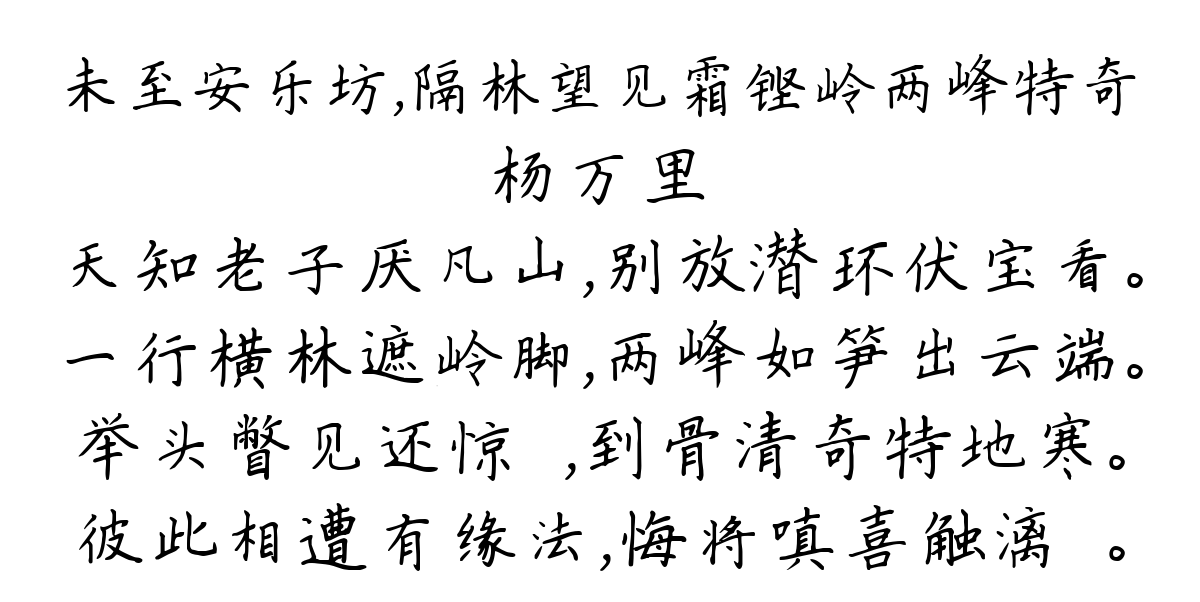 未至安乐坊,隔林望见霜铿岭两峰特奇
杨万里
天知老子厌凡山,别放潜环伏宝看。
一行横林遮岭脚,两峰如笋出云端。
举头瞥见还惊 ,到骨清奇特地寒。
彼此相遭有缘法,悔将嗔喜触漓 。